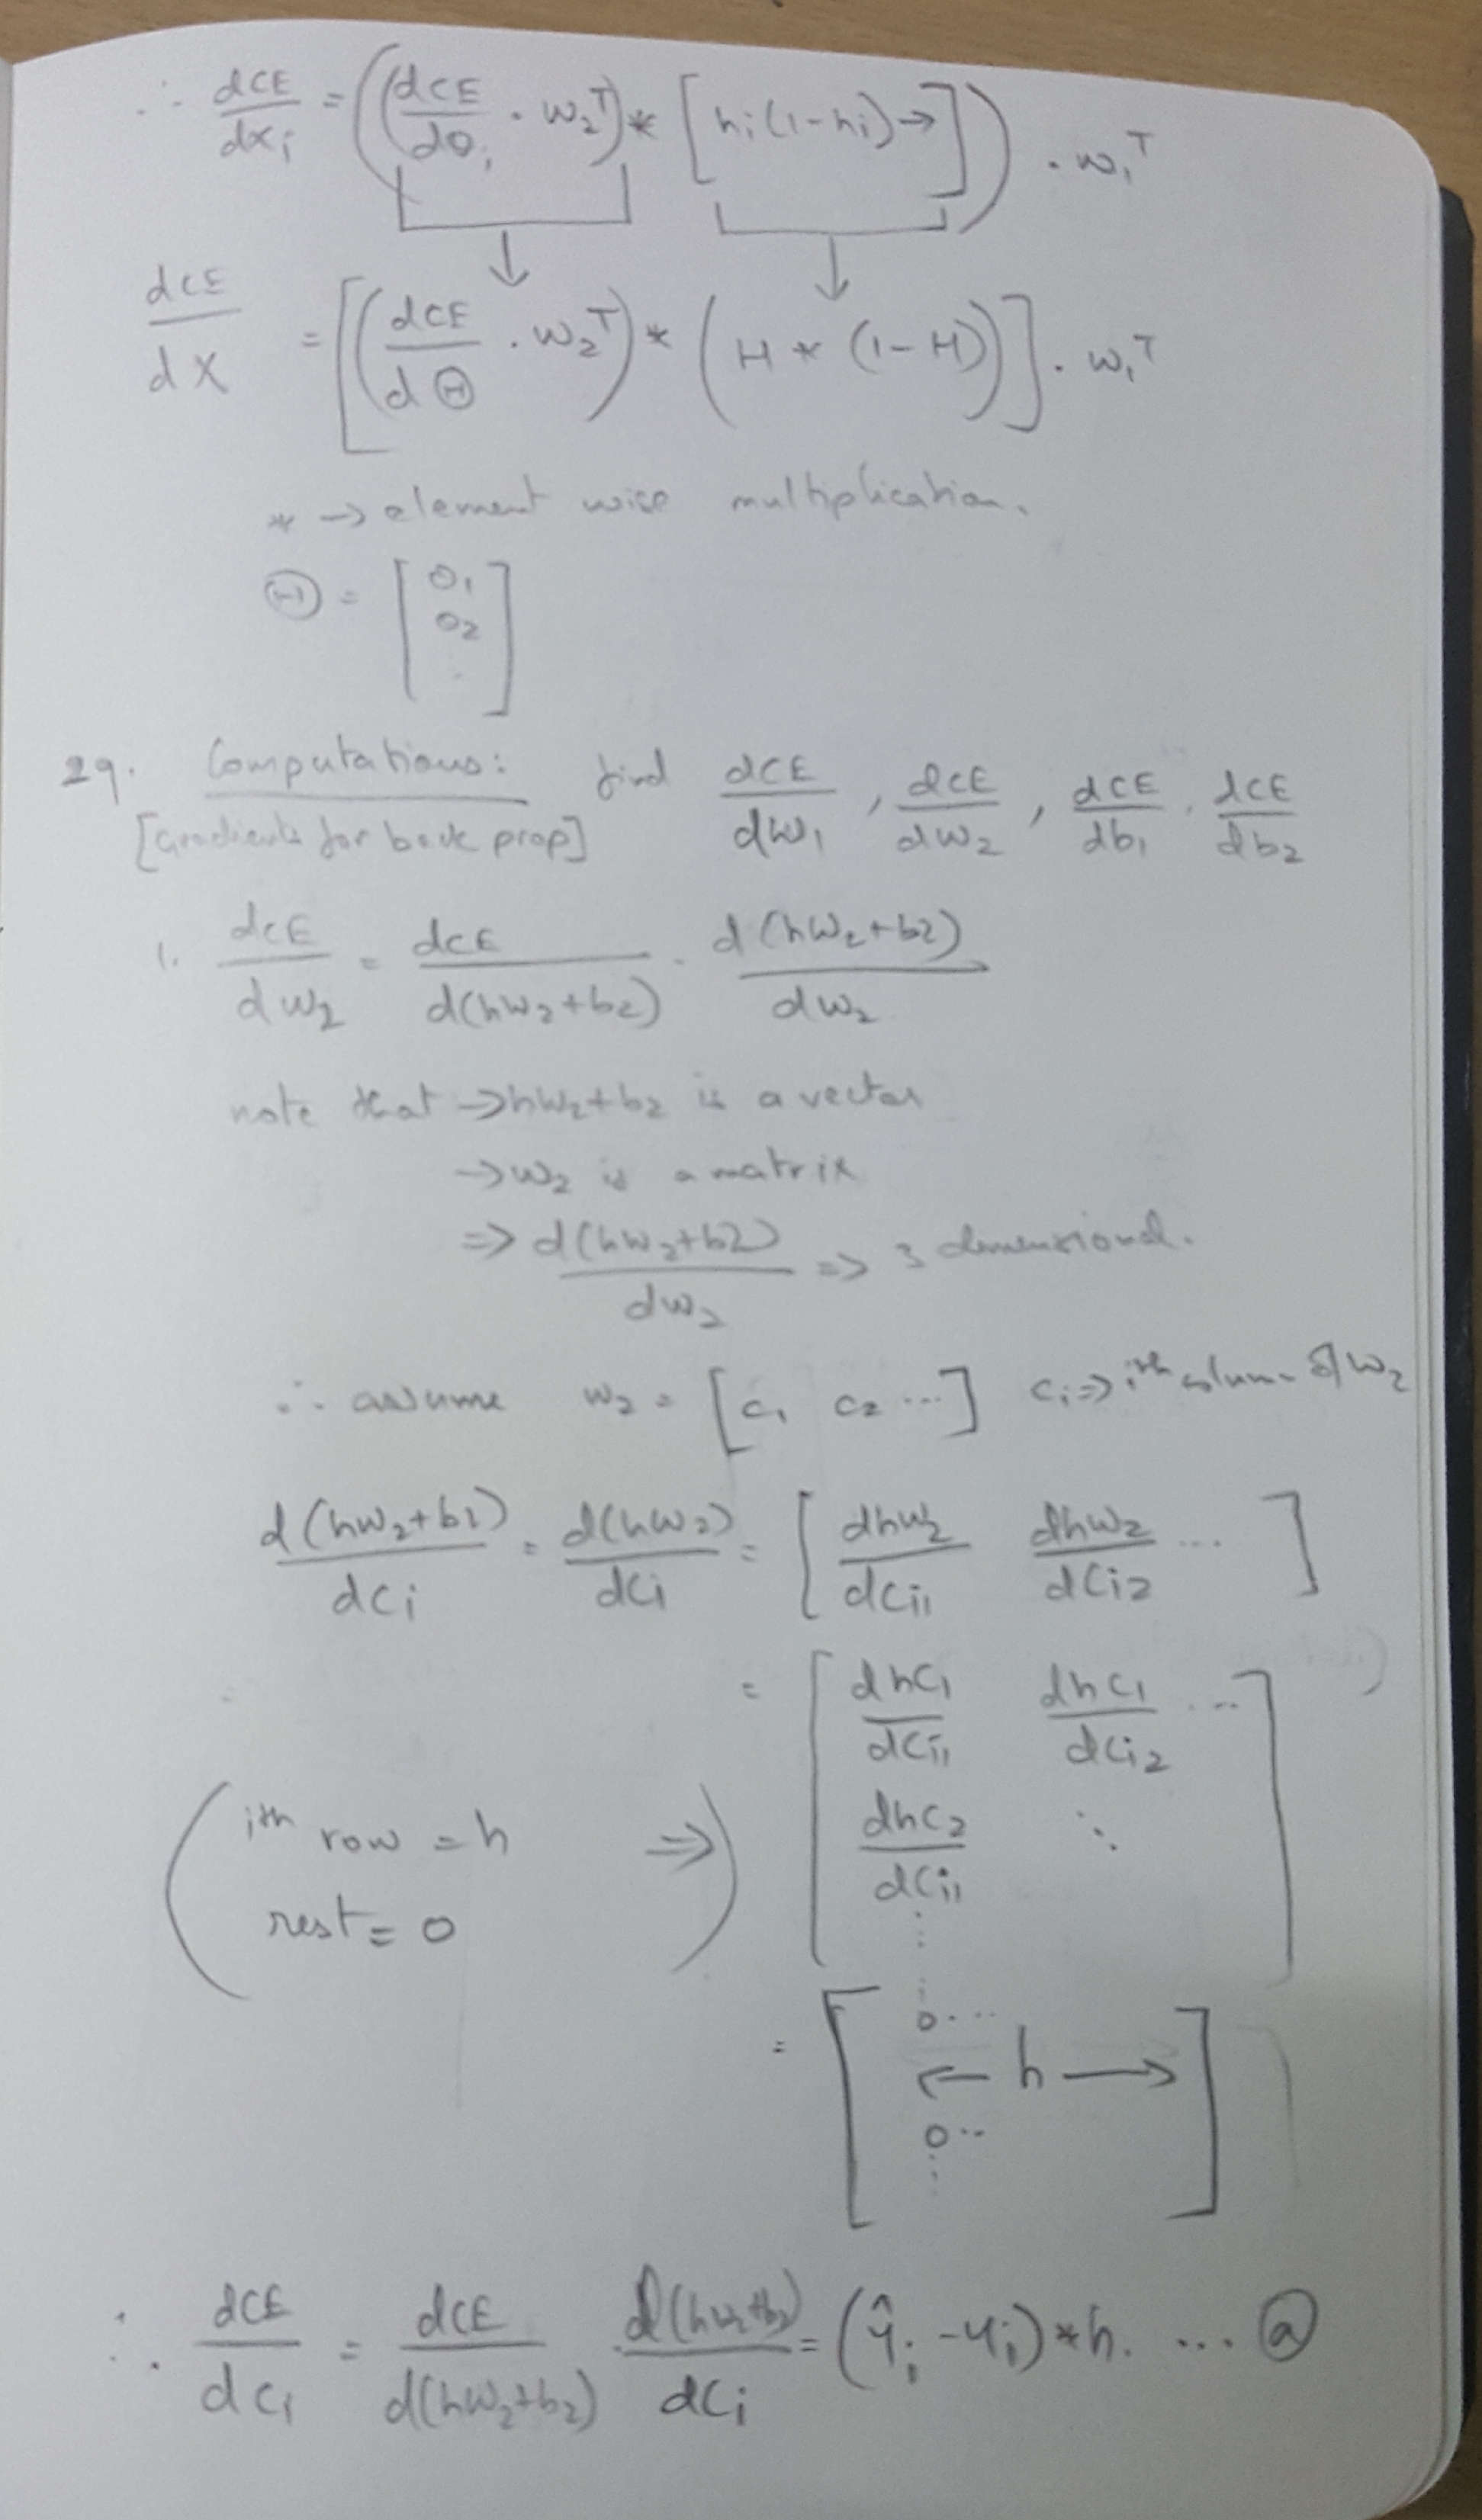 ∴ dCE/dx_i = ((dCE/dθ_i · w_2^T) * [h_i(1-h_i)→]) · w_1^T
dCE/dX = [(dCE/dΘ · w_2^T) * (H * (1-H))] · w_1^T
* → element wise multiplication.
Θ = [θ_1 θ_2 .]
29. Computations: find dCE/dW_1, dCE/dW_2, dCE/db_1, dCE/db_2
[Gradients for back prop]
1. dCE/dw_2 = dCE/d(hw_2+b_2) · d(hw_2+b_2)/dw_2
note that → hw_2+b_2 is a vector
→ w_2 is a matrix
⇒ d(hw_2+b_2)/dw_2 ⇒ 3 dimensional.
∴ assume w_2 = [c_1 c_2 ...] c_i ⇒ ith column of w_2
d(hw_2+b_2)/dc_i = d(hw_2)/dc_i = [dhw_2/dc_i1 dhw_2/dc_i2 ...]
= [dhc_1/dc_i1 dhc_1/dc_i2 ...
dhc_2/dc_i1 ⋱
⋮ ]
(ith row = h ⇒)
rest = 0
= [⋮
0...
← h →
0..
⋮]
∴ dCE/dc_i = dCE/d(hw_2+b_2) d(hw_2+b_2)/dc_i = (ŷ_i - y_i) * h. ... ⓐ